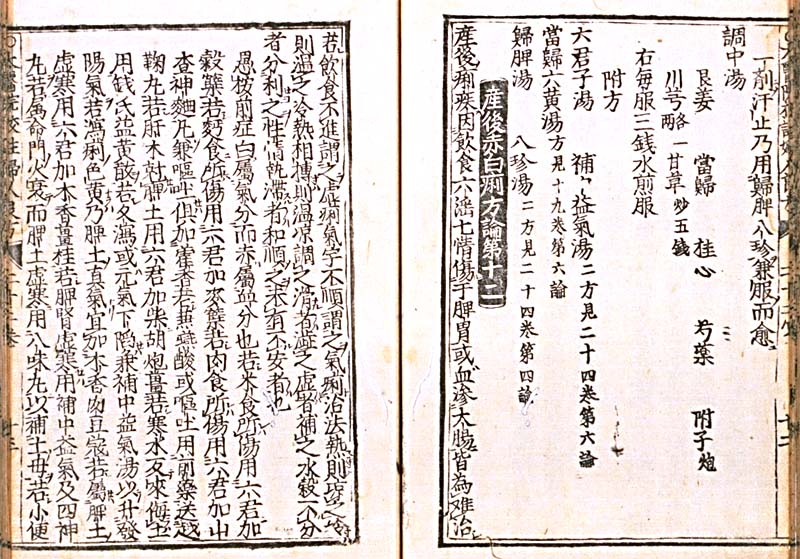 一削汗止乃用歸脾八珍兼服而愈
調中湯
良姜 當歸 桂心 芍藥 附子炮
川芎各一兩 甘草炒五錢
右每服三錢水煎服
附方
六君子湯 補中益氣湯二方見二十四卷第六論
當歸六黃湯方見十九卷第六論
歸脾湯 八珍湯二方見二十四卷第四論
產後赤白痢方論第十二
產後痢疾因飲食六淫七情傷于脾胃或血滲大腸皆為難治
若飲食不進謂之虛痢氣宇不順謂之氣痢治法熱則涼之冷
則溫之冷熱相搏則溫涼調之滑者澀之虛者補之水穀不分
者分利之性情執滯者和順之未有不安者也
愚按前症白屬氣分而赤屬血分也若米食所傷用六君加
穀蘗若麪食所傷用六君加麥蘗若肉食所傷用六君加山
查神麯凡兼嘔吐俱加藿香若兼嚥酸或嘔吐用前藥送越
鞠丸若肝木尅脾土用六君加柴胡炮薑若寒水反來侮土
用錢氏益黃散若久瀉或元氣下陷兼補中益氣湯以升發
陽氣若瀉痢色黃乃脾土真氣宜加木香肉豆蔻若屬脾土
虛寒用六君加木香薑桂若脾腎虛寒用補中益氣及四神
丸若屬命門火衰而脾土虛寒用八味丸以補土母若小便